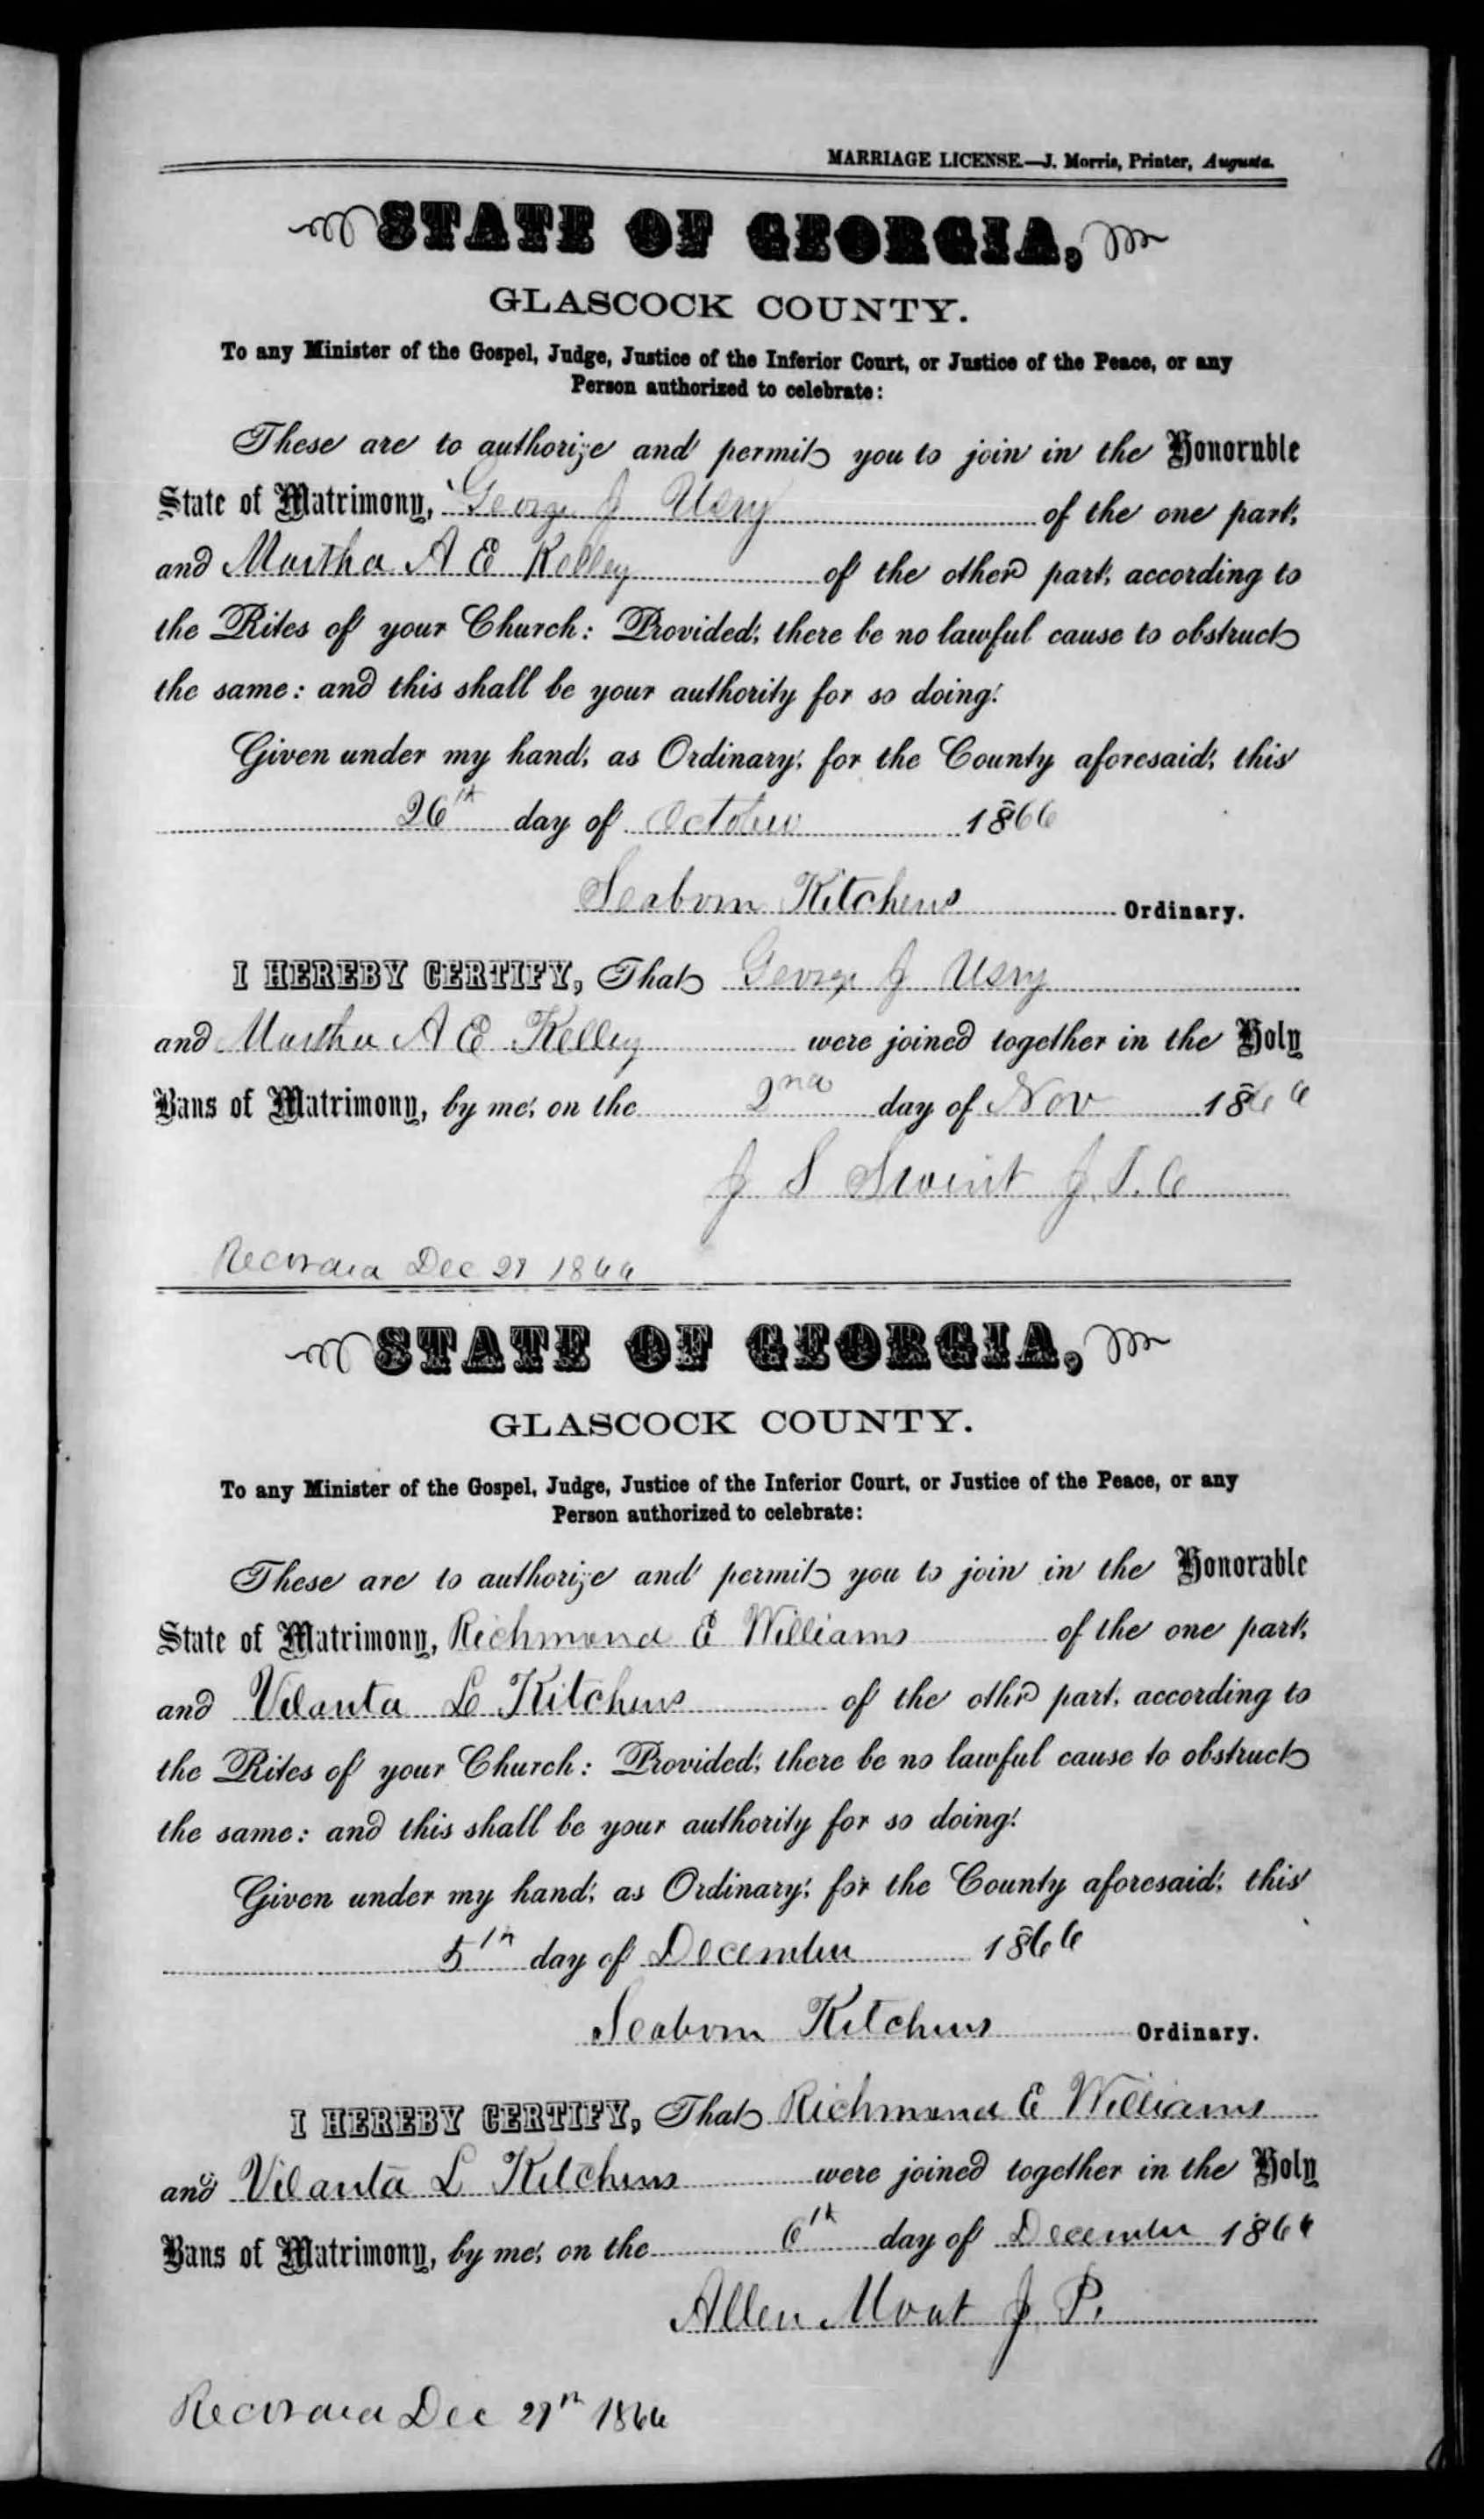 MARRIAGE LICENSE.—J. Morris, Printer, Augusta.
STATE OF GEORGIA,
GLASCOCK COUNTY.
To any Minister of the Gospel, Judge, Justice of the Inferior Court, or Justice of the Peace, or any
Person authorized to celebrate:
These are to authorize and permit you to join in the Honorable
State of Matrimony, George J Usry of the one part,
and Martha A E Kelley of the other part, according to
the Rites of your Church: Provided, there be no lawful cause to obstruct
the same: and this shall be your authority for so doing.
Given under my hand, as Ordinary, for the County aforesaid, this
26th day of October 1866
Seaborn Kitchens Ordinary.
I HEREBY CERTIFY, That George J Usry
and Martha A E Kelley were joined together in the Holy
Bans of Matrimony, by me, on the 2nd day of Nov 1866
J S Swint J. I. C
Recorded Dec 27 1866
STATE OF GEORGIA,
GLASCOCK COUNTY.
To any Minister of the Gospel, Judge, Justice of the Inferior Court, or Justice of the Peace, or any
Person authorized to celebrate:
These are to authorize and permit you to join in the Honorable
State of Matrimony, Richmond E Williams of the one part,
and Vilanta L Kitchens of the other part, according to
the Rites of your Church: Provided, there be no lawful cause to obstruct
the same: and this shall be your authority for so doing.
Given under my hand, as Ordinary, for the County aforesaid, this
5th day of December 1866
Seaborn Kitchens Ordinary.
I HEREBY CERTIFY, That Richmond E Williams
and Vilanta L Kitchens were joined together in the Holy
Bans of Matrimony, by me, on the 6th day of December 1866
Allen Moat J. P.
Recorded Dec 27th 1866